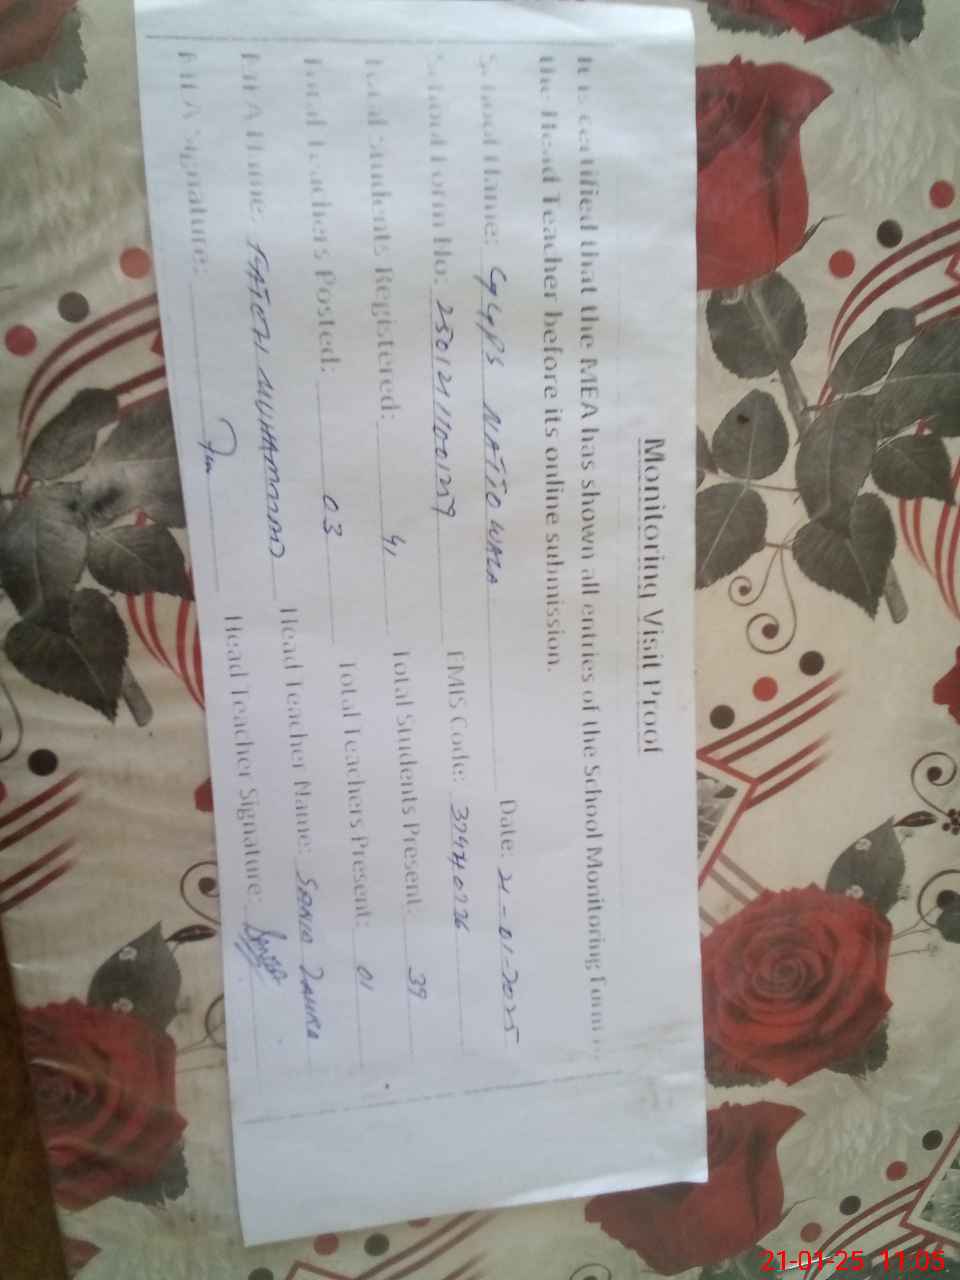 Monitoring Visit Proof
It is certified that the MEA has shown all entries of the School Monitoring Form to
the Head Teacher before its online submission.
Date: 21-01-2025
School Name: GGPS NATTO WALA
School Form No: 2501211001259 EMIS Code: 37470226
Total Students Registered: 41 Total Students Present: 39
Total Teachers Posted: 03 Total Teachers Present: 01
MEA Name: FATEH MUHAMMAD Head Teacher Name: SANIA ZAHRA
MEA Signature: Head Teacher Signature:
21-01-25 11:05